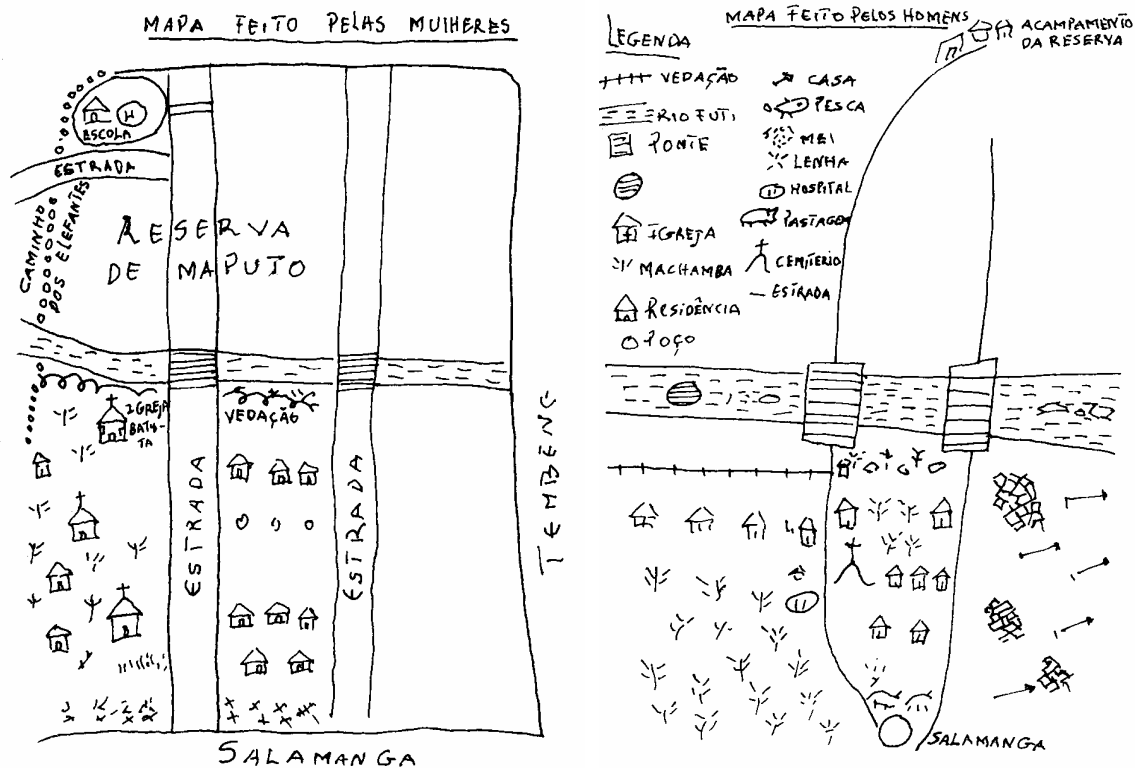 MAPA FEITO PELAS MULHERES
H
ESCOLA
ESTRADA
CAMINHO
DOS ELEFANTES
RESERVA
DE MAPUTO
IGREJA
BATIS-
TA
VEDAÇÃO
ESTRADA
ESTRADA
TEMBENE
SALAMANGA
MAPA FEITO PELOS HOMENS
ACAMPAMENTO
DA RESERVA
LEGENDA
VEDAÇÃO
RIO FUTI
PONTE
IGREJA
MACHAMBA
RESIDÊNCIA
POÇO
CASA
PESCA
MEL
LENHA
HOSPITAL
PASTAGEM
CEMITERIO
ESTRADA
SALAMANGA